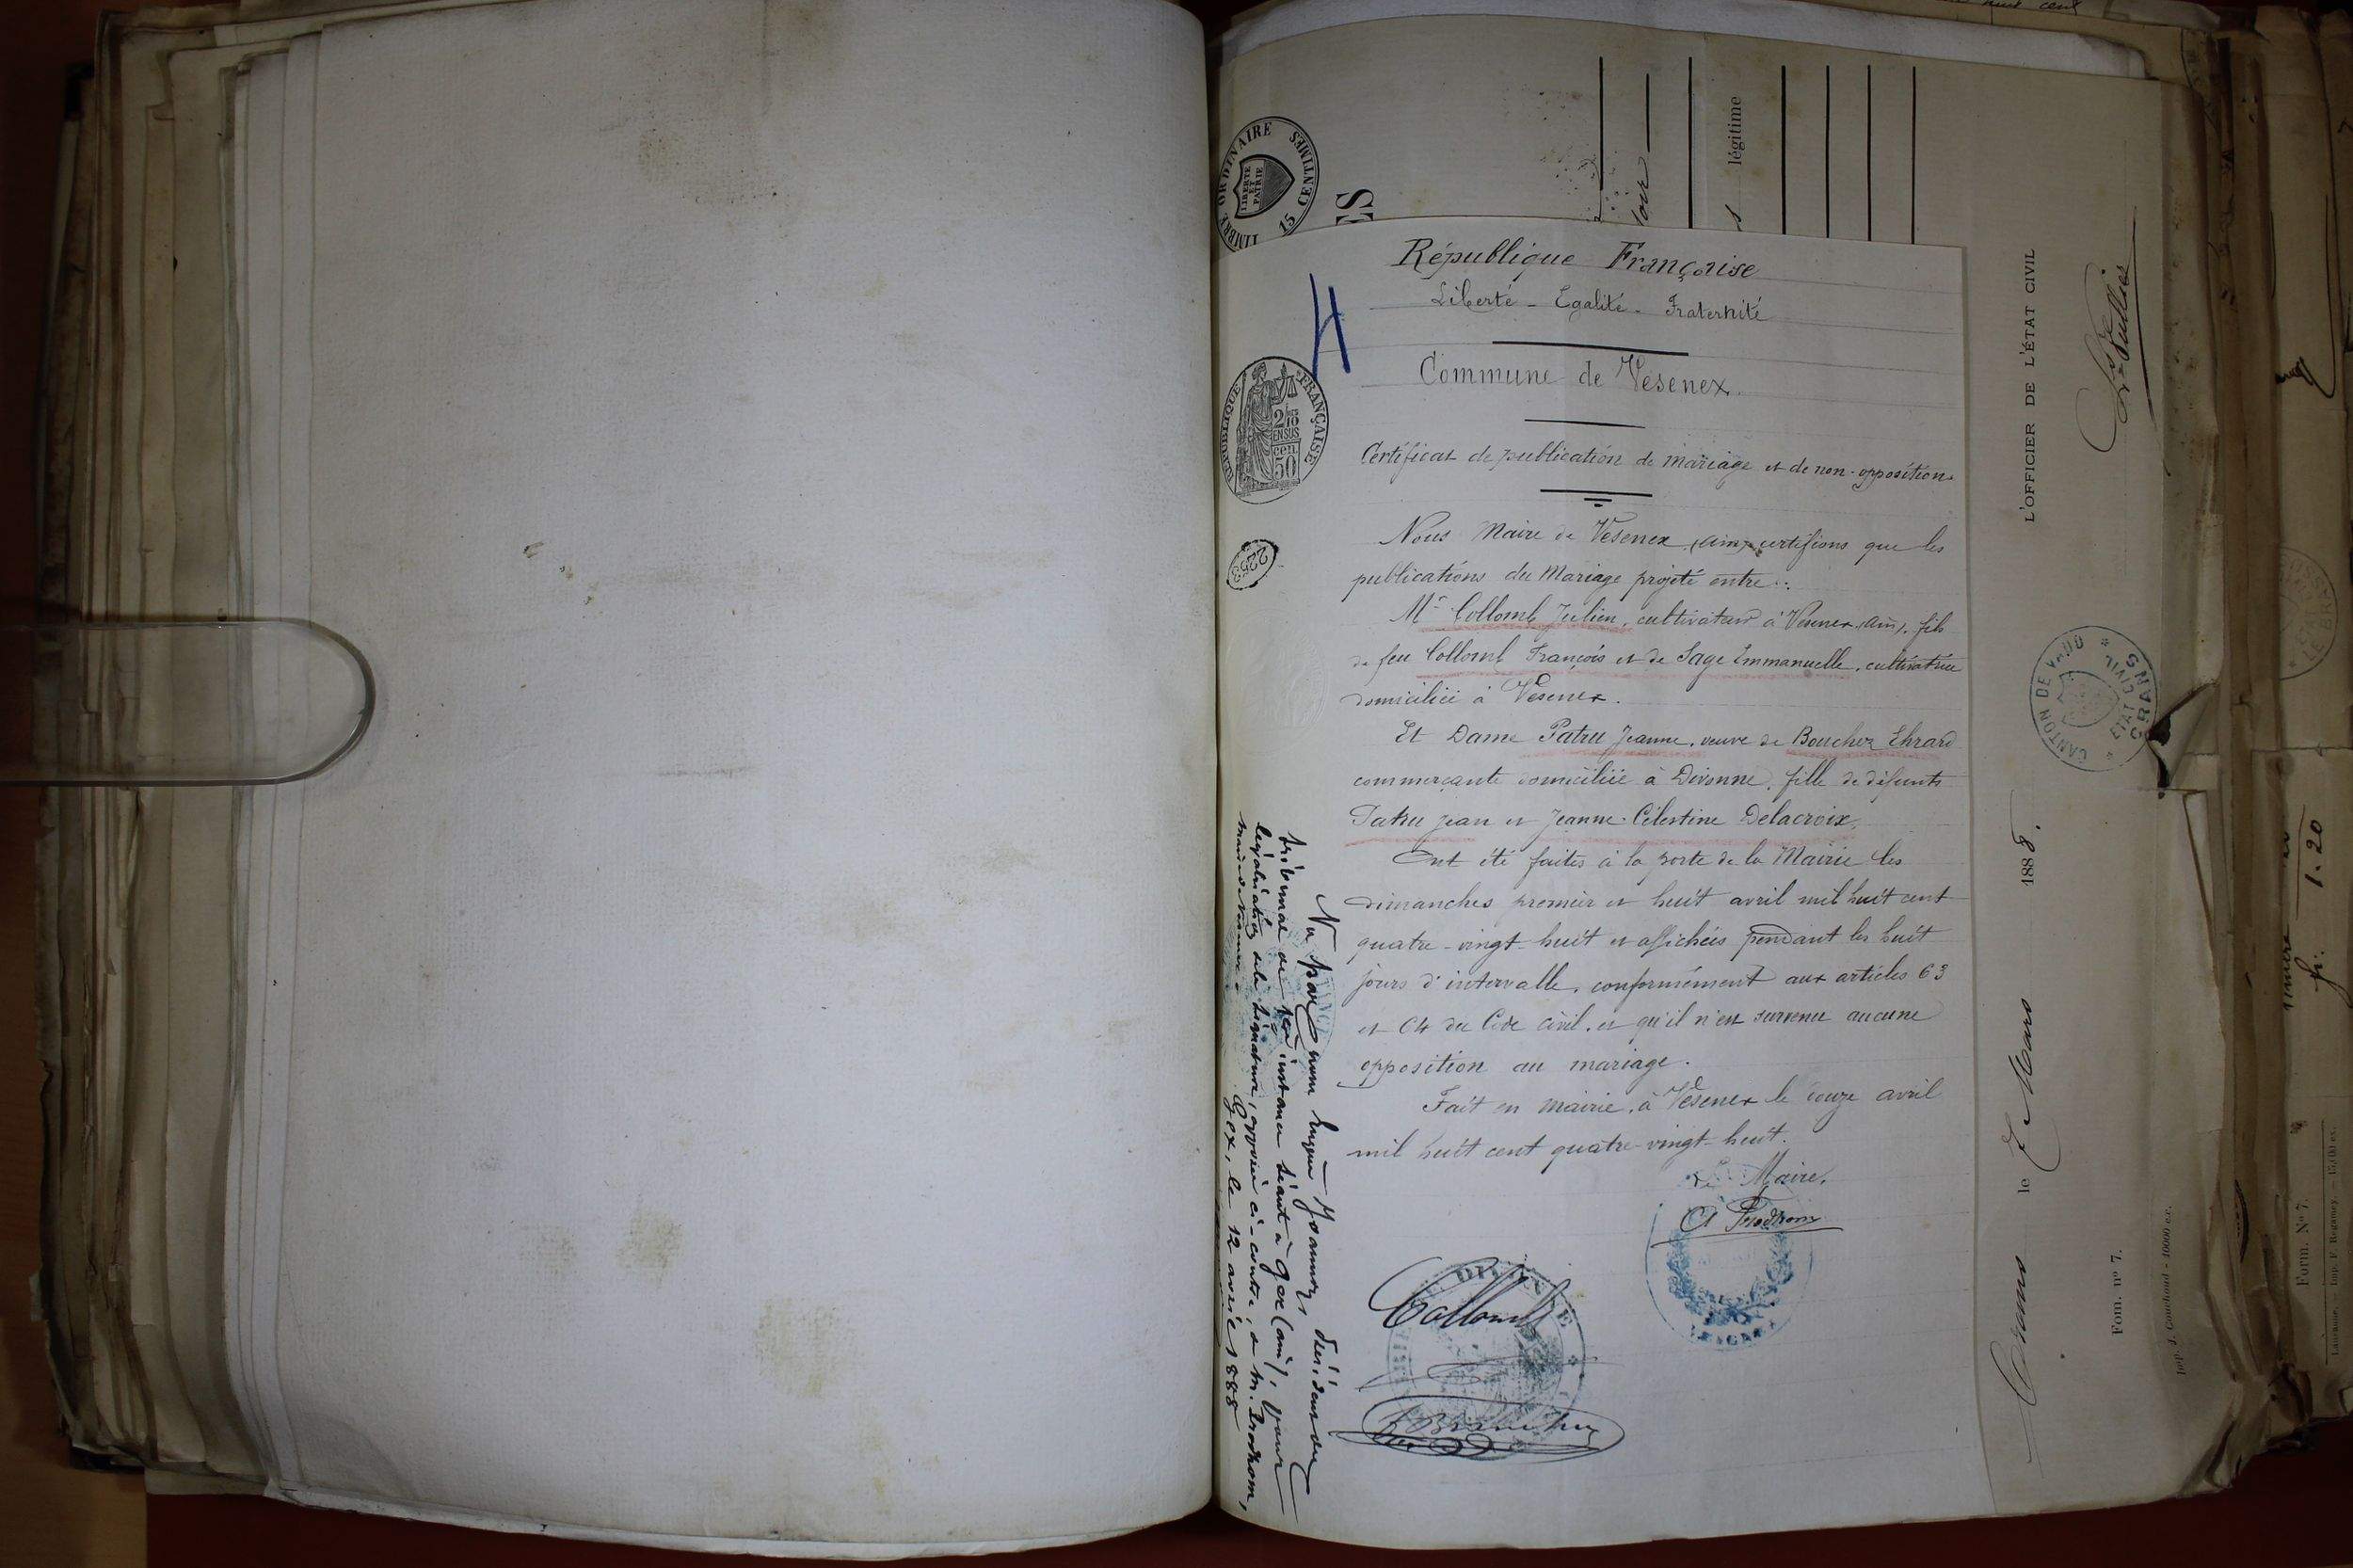 République Française
Liberté - Egalité - Fraternité
Commune de Vesenex.
Certificat de publication de mariage et de non-opposition
Nous Maire de Vesenex (ain) certifions que les
publications du Mariage projeté entre :
Mr Collomb Julien, cultivateur à Vesenex (ain), fils
de feu Collomb François et de Sage Emmanuelle, cultivatrice
domiciliée à Vesenex.
Et Dame Patru Jeanne, veuve de Bouchez Ehrard
commerçante domiciliée à Divonne, fille de défunts
Patru Jean et Jeanne-Célestine Delacroix,
Ont été faites à la porte de la Mairie les
dimanches premier et huit avril mil huit cent
quatre-vingt-huit et affichées pendant les huit
jours d'intervalle, conformément aux articles 63
et 64 du Code civil, et qu'il n'est survenu aucune
opposition au mariage.
Fait en mairie, à Vesenex le onze avril
mil huit cent quatre-vingt-huit.
Le Maire,
A Prodhom
Collomb
Vu par nous Président du
tribunal de 1ère instance séant à Gex (ain), pour
légalisation de la signature, apposée ci-contre, de M. Prodhom,
maire de Vesenex.
Gex, le 12 avril 1888
RÉPUBLIQUE FRANÇAISE
2/10
EN SUS
cen.
50
2253
TIMBRE ORDINAIRE
15 CENTIMES
LIBERTÉ
ET
PATRIE
ES
légitime
L'OFFICIER DE L'ÉTAT CIVIL
CANTON DE VAUD
ÉTAT CIVIL
CRANS
Crans le 7 Mars 1888.
Fom. nº 7.
Imp. J. Couchoud - 10000 ex.
fr. 1.20
Form. Nº 7.